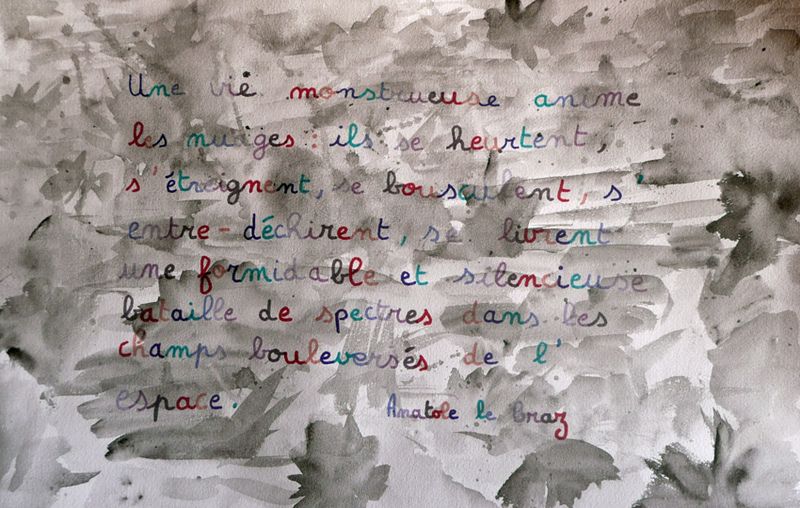 Une vie monstrueuse anime
les nuages : ils se heurtent,
s'étreignent, se bousculent, s'
entre-déchirent, se livrent
une formidable et silencieuse
bataille de spectres dans les
champs bouleversés de l'
espace.
Anatole le braz